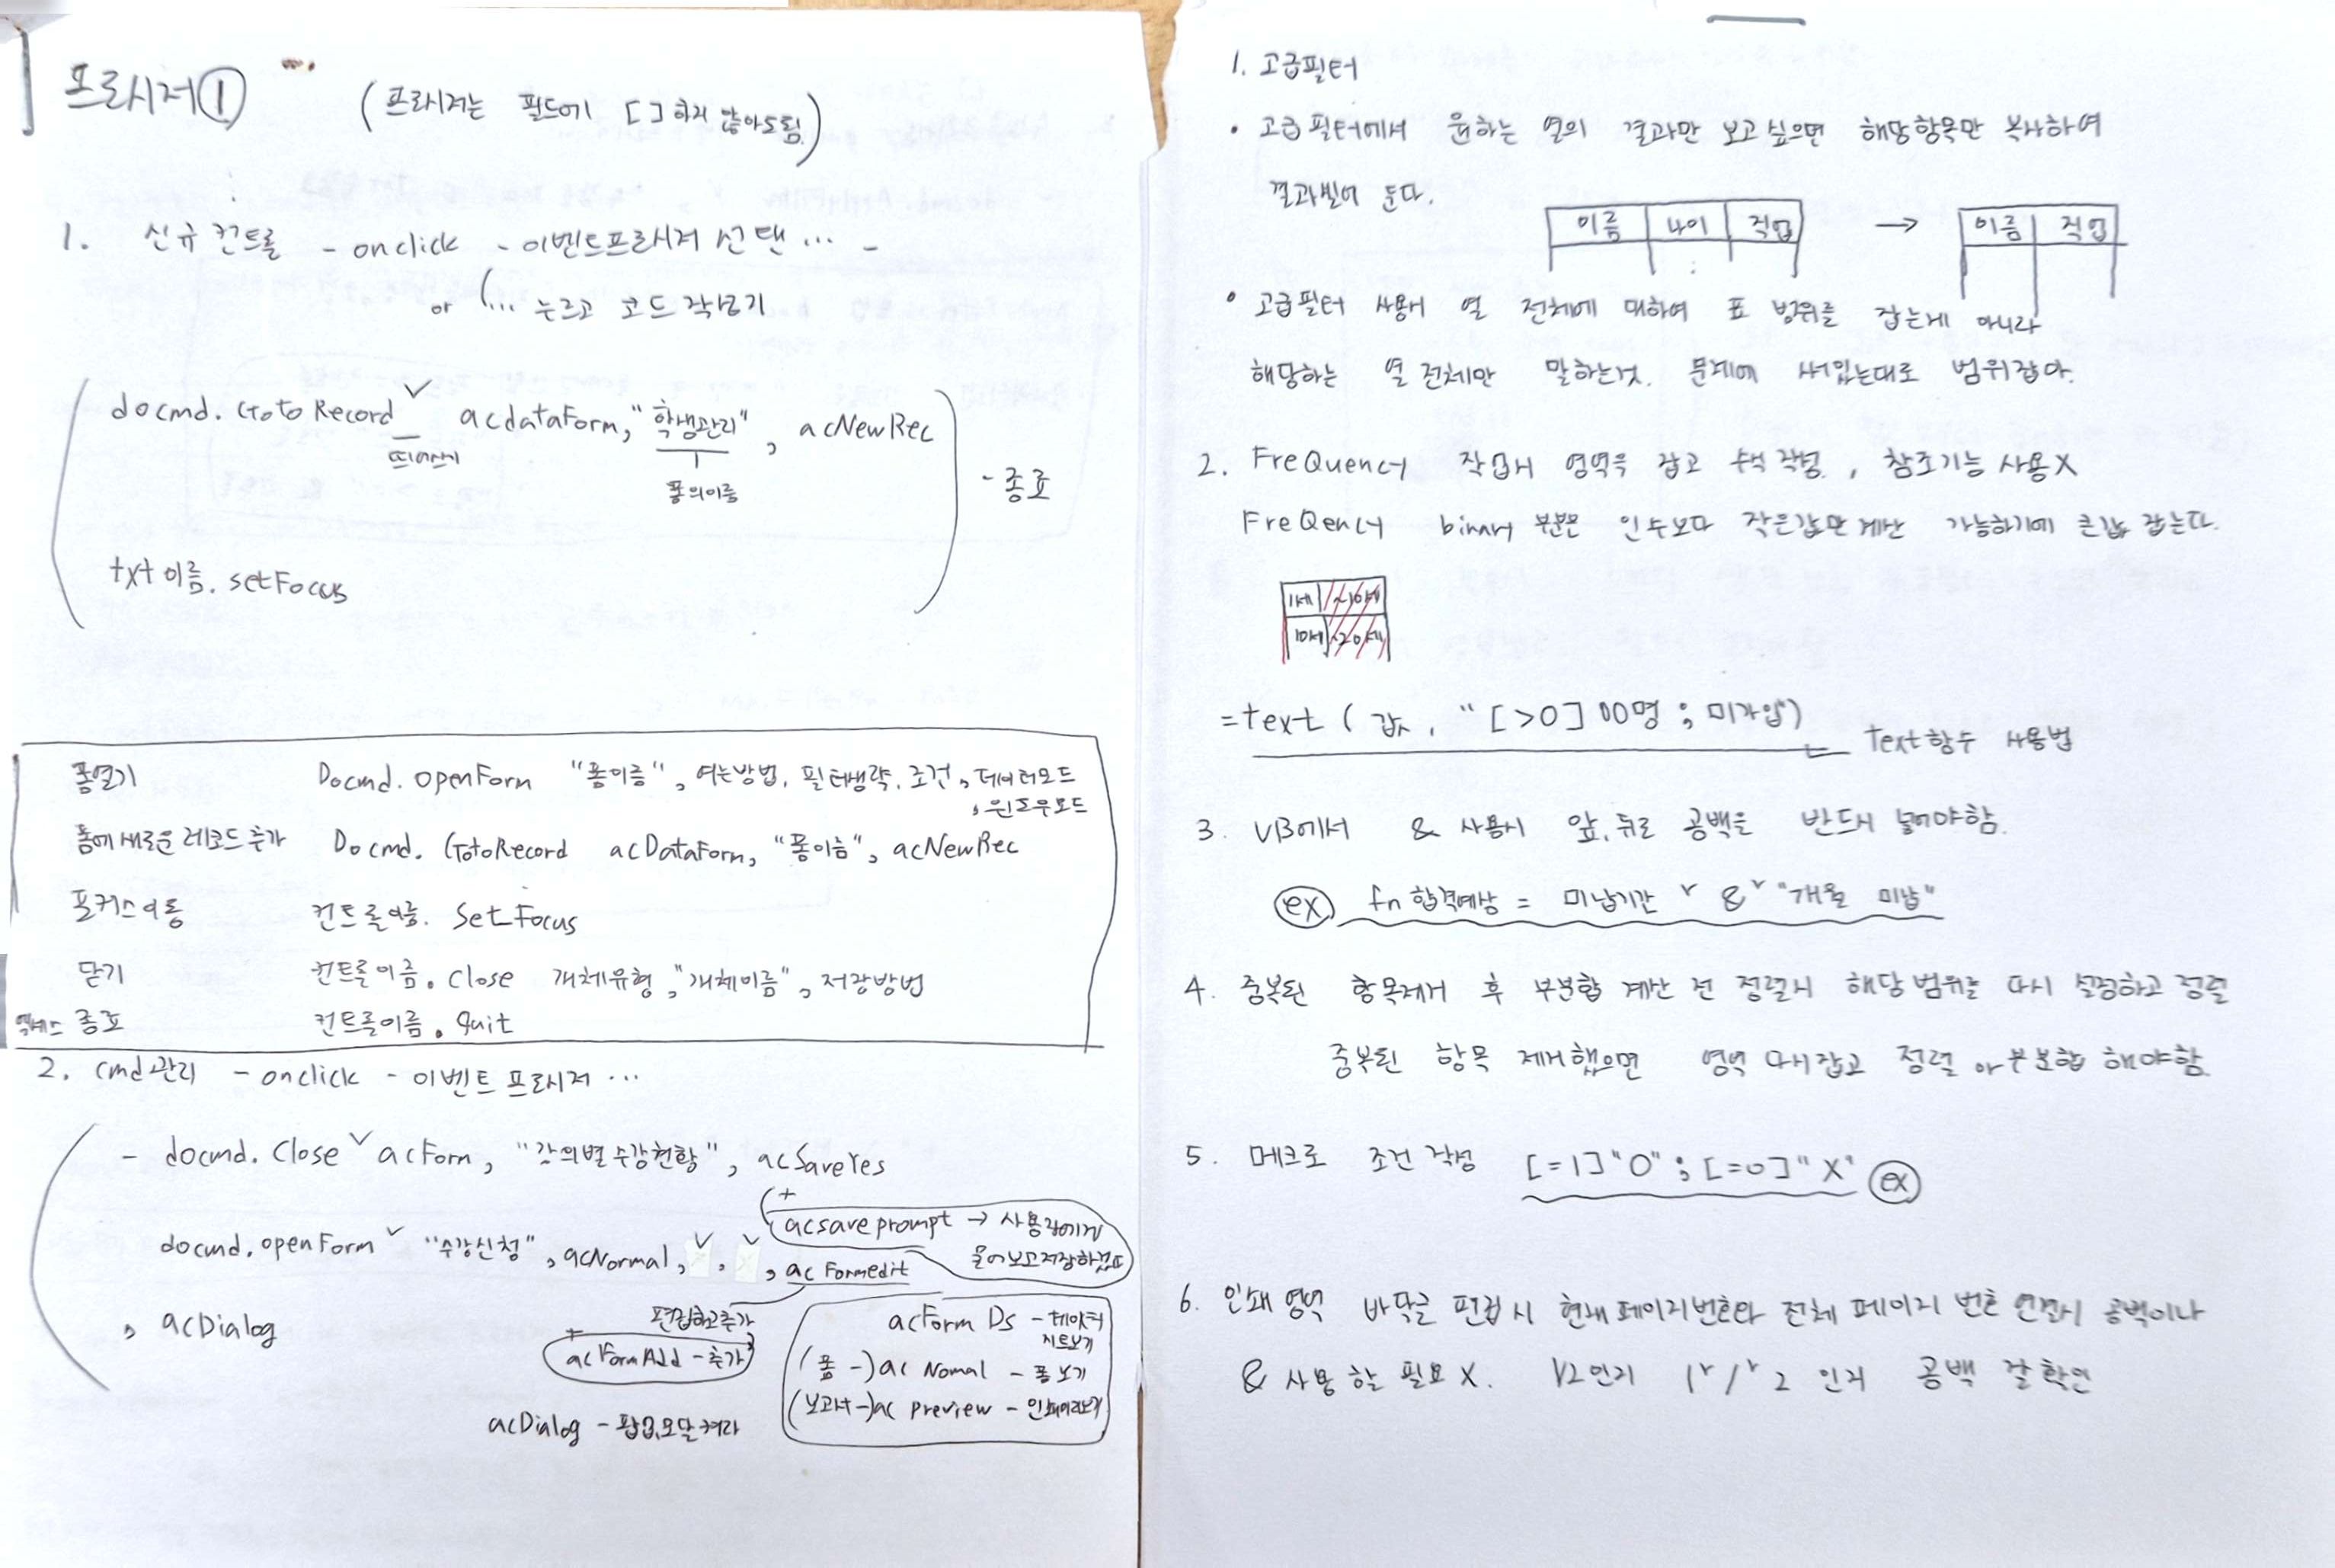 프로시저①
(프로시저는 필드에 [ ] 하지 않아도됨.)
1. 신규 컨트롤 - onclick - 이벤트프로시저 선택 … -
or (… 누르고 코드 작성기
docmd. GotoRecord acdataForm, "학생관리", acNewRec
띄어쓰기
폼의이름
- 종료
txt이름. setFocus
폼열기 Docmd. openForm "폼이름", 여는방법, 필터생략, 조건, 데이터모드
, 윈도우모드
폼에 새로운 레코드 추가 Docmd. GotoRecord acDataForm, "폼이름", acNewRec
포커스이동 컨트롤이름. SetFocus
닫기 컨트롤이름. Close 개체유형, "개체이름", 저장방법
엑세스 종료 컨트롤이름. Quit
2. cmd관리 - onclick - 이벤트 프로시저 …
- docmd. Close acForm, "강의별수강현황", acSaveYes
+
acsaveprompt → 사용자에게
물어보고저장하겠다
docmd. openForm "수강신청", acNormal, , , acFormedit
편집하고추가
, acDialog
+
acFormAdd - 추가
acForm Ds - 데이터
시트보기
(폼 -) ac Nomal - 폼 보기
(보고서-) ac preview - 인쇄미리보기
acDialog - 팝업,모달 켜라
1. 고급필터
• 고급필터에서 원하는 열의 결과만 보고싶으면 해당항목만 복사하여
결과빌에 둔다.
이름 나이 직업 → 이름 직업
• 고급필터 사용시 열 전체에 대하여 표 범위를 잡는게 아니라
해당하는 열 전체만 말하는것. 문제에 써있는대로 범위잡아.
2. FreQuency 작업시 영역을 잡고 수식 작성. , 참조기능 사용X
FreQency binary 부분은 인수보다 작은값만 계산 가능하기에 큰값 잡는다.
1세 ~10세
10세 ~20세
=text ( 값, "[>0]00명 ; 미가입")
text함수 사용법
3. VB에서 & 사용시 앞,뒤로 공백을 반드시 넣어야함.
ex fn합격예상 = 미납기간 & "개월 미납"
4. 중복된 항목제거 후 부분합 계산 전 정렬시 해당 범위를 다시 설정하고 정렬
중복된 항목 제거했으면 영역 다시잡고 정렬 아 부분합 해야함.
5. 메크로 조건 작성 [=1]"O" ; [=0]"X" ex
6. 인쇄 영역 바닥글 편집시 현재 페이지번호와 전체 페이지 번호 연결시 공백이나
& 사용 할 필요 X. 1/2 인지 1 / 2 인지 공백 잘 확인